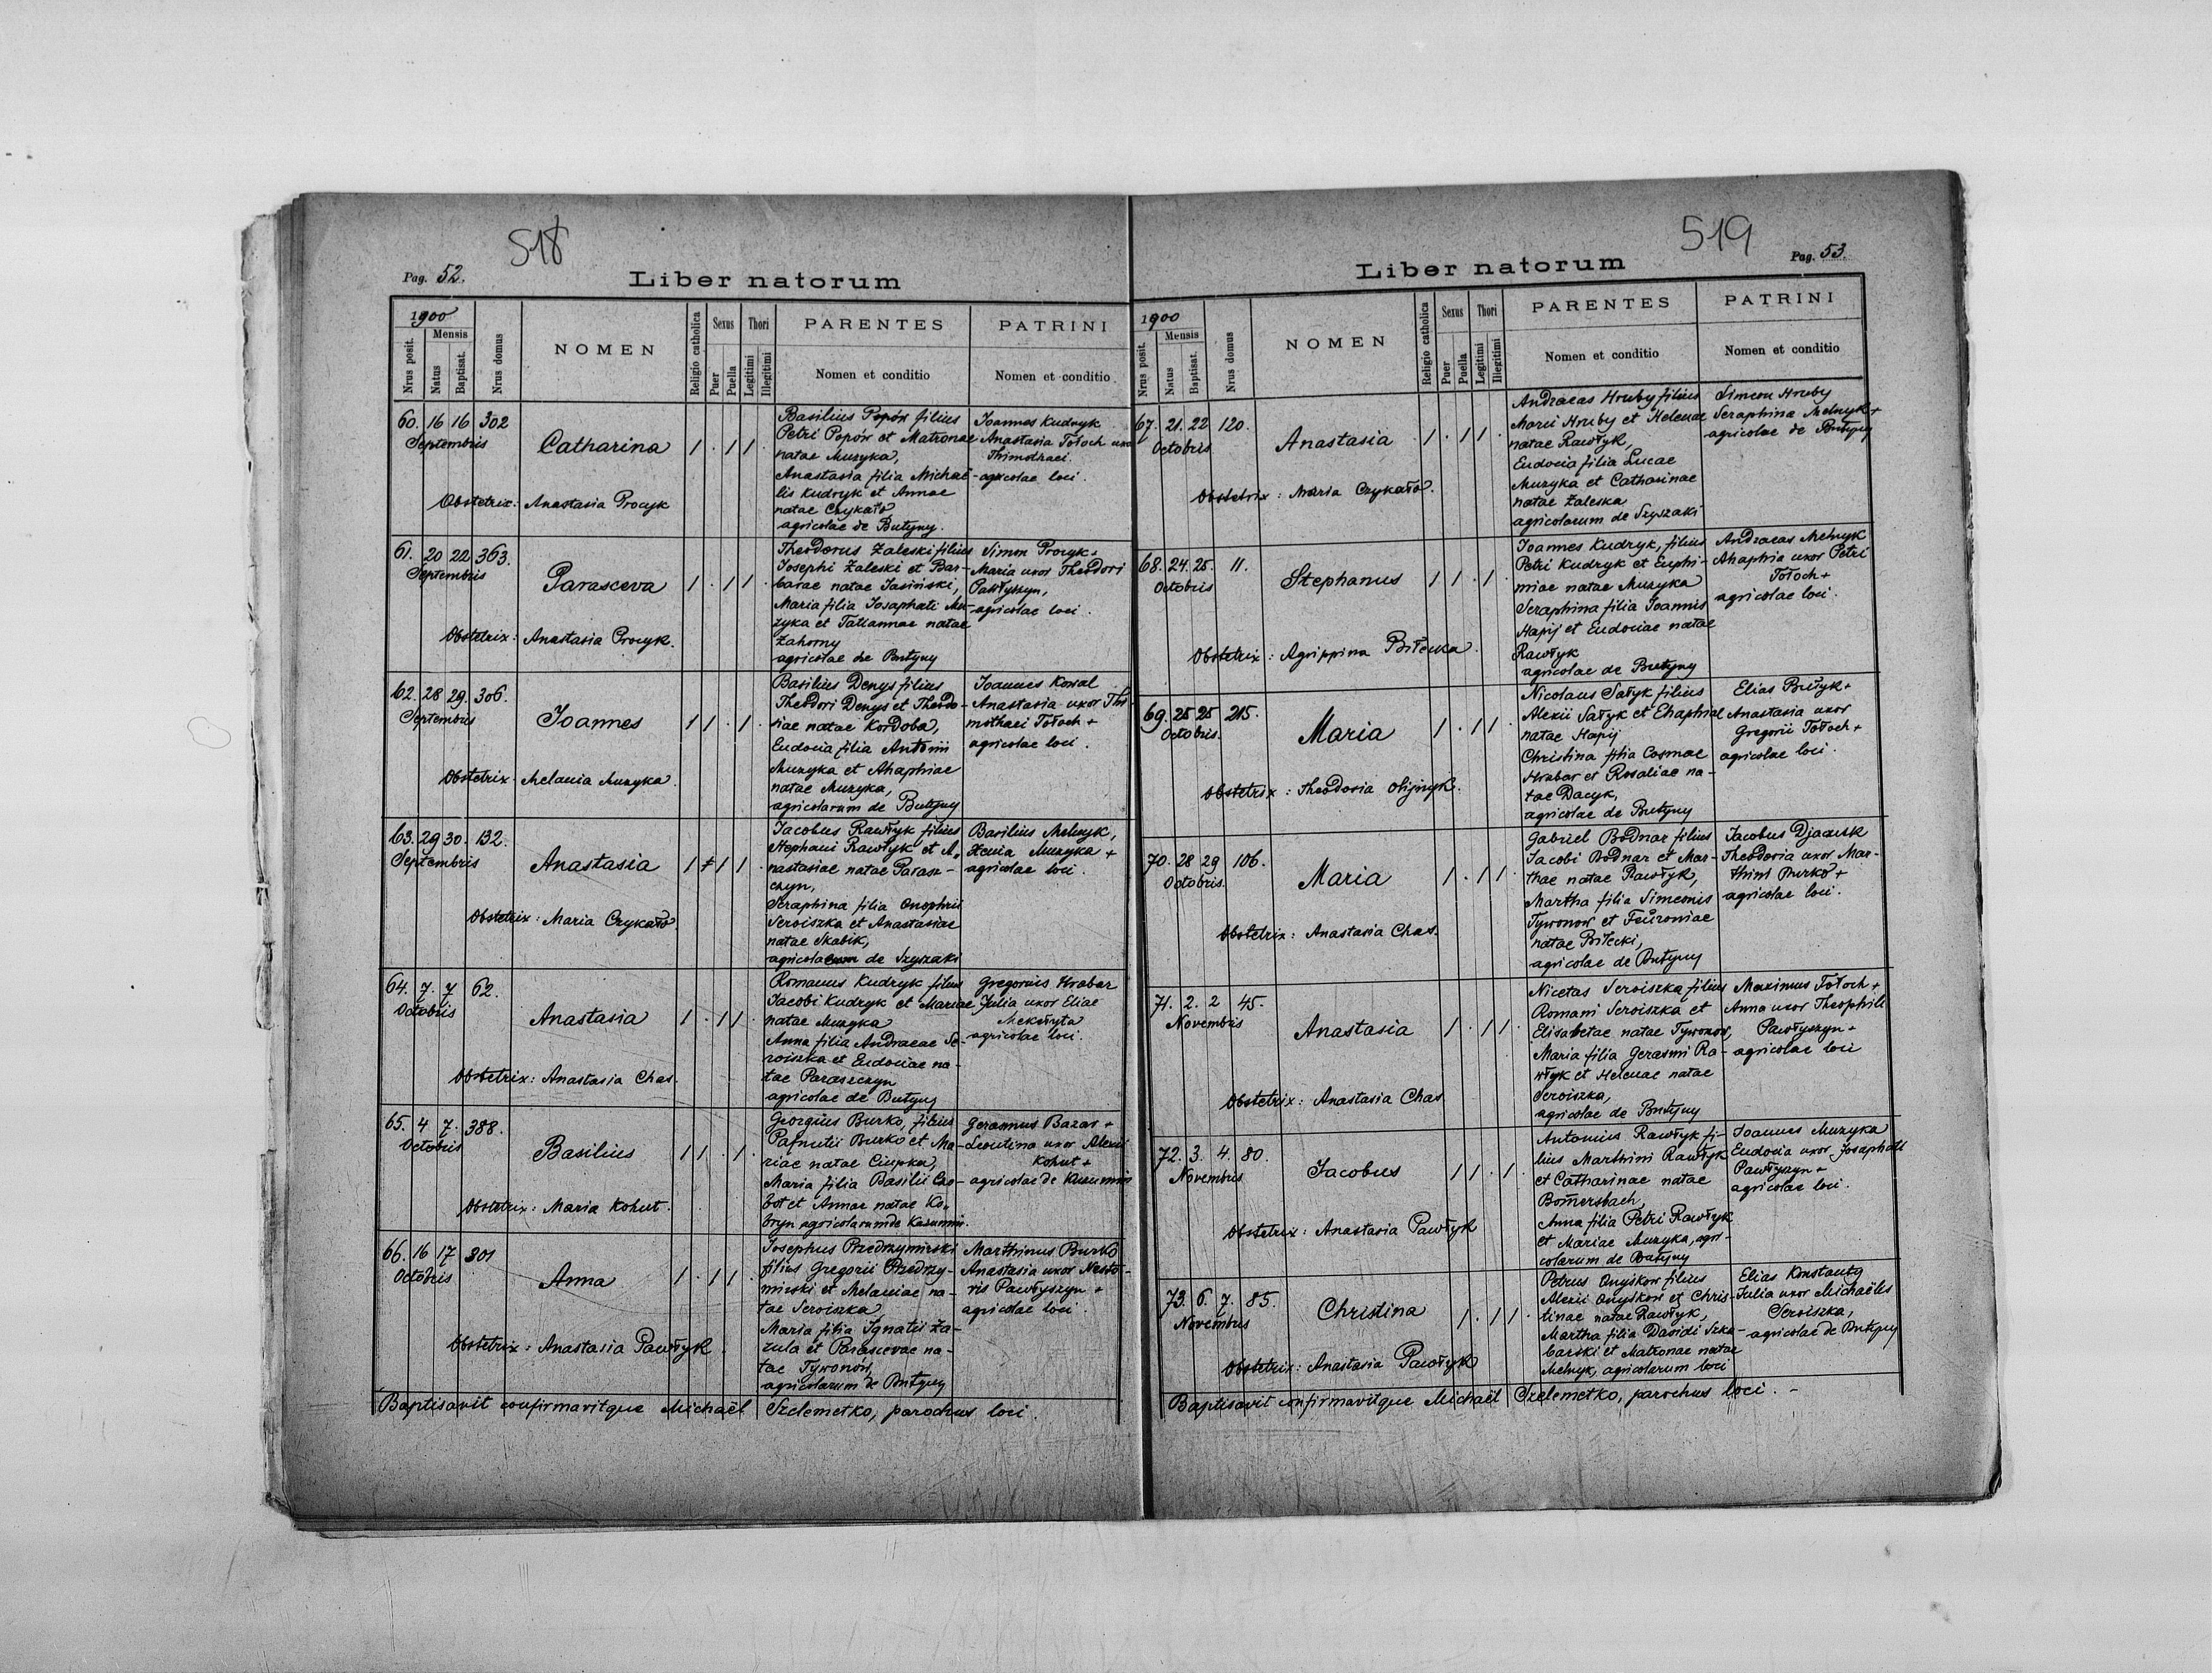 518
Pag. 52.
Liber natorum
1900
Nrus posit.
Mensis
Natus
Baptisat.
Nrus domus
NOMEN
Religio catholica
Sexus
Puer
Puella
Thori
Legitimi
Illegitimi
PARENTES
Nomen et conditio
PATRINI
Nomen et conditio
60. 16 16 302
Septembris
Catharina
1 . 1 1 .
Obstetrix: Anastasia Procyk
Basilius Popów filius
Petri Popów et Matronae
natae Muzyka,
Anastasia filia Michaë-
lis Kudryk et Annae
natae Czykało,
agricolae de Butyny.
Joannes Kudryk
Anastasia Tołoch uxor
Thimothaei
agricolae loci.
61. 20 22 363.
Septembris
Parasceva
1 . 1 1 .
Obstetrix: Anastasia Procyk.
Theodorus Zaleski filius
Josephi Zaleski et Bar-
barae natae Jasiński,
Maria filia Josaphati Mu-
zyka et Tatiannae natae
Zahorny
agricolae de Butyny
Simon Procyk+
Maria uxor Theodori
Pawłyszyn,
agricolae loci.
62. 28 29. 306.
Septembris
Joannes
1 1 . 1 .
Obstetrix: Melania Muzyka.
Basilius Denys filius
Theodori Denys et Theodo-
siae natae Kordoba,
Eudocia filia Antonii
Muzyka et Ahaphiae
natae Muzyka,
agricolarum de Butyny
Joannes Kowal
Anastasia uxor Thi
mothaei Tołoch +
agricolae loci.
63. 29 30. 132.
Septembris
Anastasia
1 + 1 1 .
Obstetrix: Maria Czykało.
Jacobus Rawłyk filius
Stephani Rawłyk et A„
nastasiae natae Parasz-
czyn,
Seraphina filia Onophrii
Seroiszka et Anastasiae
natae Skabik,
agricolarum de Szyszaki
Basilius Melnyk,
Xenia Muzyka +
agricolae loci.
64. 7. 7 62.
Octobris
Anastasia
1 . 1 1 .
Obstetrix: Anastasia Chas.
Romanus Kudryk filius
Jacobi Kudryk et Mariae
natae Muzyka
Anna filia Andraeae Se-
roiszka et Eudociae na-
tae Paraszczyn
agricolae de Butyny
Gregorius Hrabar
Julia uxor Eliae
Mekełyta
agricolae loci.
65. 4 7. 388.
Octobris
Basilius
1 1 . 1 .
Obstetrix: Maria Kohut.
Georgius Burko, filius
Pafnutii Burko et Ma-
riae natae Ciupka,
Maria filia Basilii Cho-
bot et Annae natae Ko„
bryn agricolarum de Kazumin.
Gerasmus Bazar +
Leontina uxor Alexii
Kohut +
agricolae de Kazumin
66. 16 17 301
Octobris
Anna
1 . 1 1 .
Obstetrix: Anastasia Pawłyk.
Josephus Przedrzymirski
filius Gregorii Przedrzy-
mirski et Melaniae na-
tae Seroiszka
Maria filia Ignatii Za-
zula et Parascevae na-
tae Tywonów,
agricolarum de Butyny
Marthinus Burko
Anastasia uxor Nesto-
ris Pawłyszyn +
agricolae loci.
Baptisavit confirmavitque Michaël Szelemetko, parochus loci.
519
Pag. 53.
Liber natorum
1900
Nrus posit.
Mensis
Natus
Baptisat.
Nrus domus
NOMEN
Religio catholica
Sexus
Puer
Puella
Thori
Legitimi
Illegitimi
PARENTES
Nomen et conditio
PATRINI
Nomen et conditio
67. 21. 22 120.
Octobris
Anastasia
1 . 1 1 .
Obstetrix: Maria Czykało.
Andraeas Hruby filius
Marii Hruby et Helenae
natae Rawłyk,
Eudocia filia Lucae
Muzyka et Catharinae
natae Zaleska
agricolarum de Szyszaki
Simeon Hruby
Seraphina Melnyk+
agricolae de Butyny
68. 24. 25. 11.
Octobris
Stephanus
1 1 . 1 .
Obstetrix: Agrippina Biłecka.
Joannes Kudryk, filius
Petri Kudryk et Euphi-
miae natae Muzyka
Seraphina filia Joannis
Hapij et Eudociae natae
Rawłyk
agricolae de Butyny
Andraeas Melnyk
Ahaphia uxor Petri
Tołoch+
agricolae loci.
69. 25 25 215.
Octobris.
Maria
1 . 1 1 .
Obstetrix: Theodosia Olijnyk.
Nicolaus Sałyk filius
Alexii Sałyk et Ehaphiae
natae Hapij
Christina filia Cosmae
Hrabar et Rosaliae na-
tae Dacyk,
agricolae de Butyny
Elias Bułyk+
Anastasia uxor
Gregorii Tołoch+
agricolae loci.
70. 28 29 106.
Octobris.
Maria
1 . 1 1 .
Obstetrix: Anastasia Chas.
Gabriel Bodnar filius
Jacobi Bodnar et Mar-
thae natae Rawłyk,
Martha filia Simeonis
Tywonow et Feuroniae
natae Biłecki,
agricolae de Butyny
Jacobus Djaczuk
Theodoria uxor Mar-
thini Burko+
agricolae loci.
71. 2. 2 45.
Novembris
Anastasia
1 . 1 1 .
Obstetrix: Anastasia Chas
Nicetas Seroiszka filius
Romani Seroiszka et
Elisabetae natae Tywonow,
Maria filia Gerasmi Ra-
włyk et Helenae natae
Seroiszka,
agricolae de Butyny
Maximus Tołoch+
Anna uxor Theophili
Pawłyszyn+
agricolae loci
72. 3. 4. 80.
Novembris
Jacobus
1 1 . 1 .
Obstetrix: Anastasia Pawłyk
Antonius Rawłyk fi-
lius Marthini Rawłyk
et Catharinae natae
Bomersbach,
Anna filia Petri Rawłyk
et Mariae Muzyka, agri-
colarum de Butyny
Joannes Muzyka
Eudocia uxor Josaphati
Pawłyszyn+
agricolae loci.
73. 6. 7. 85.
Novembris
Christina
1 . 1 1 .
Obstetrix: Anastasia Pawłyk
Petrus Onyśkow filius
Alexii Onyśkow et Chris-
tinae natae Rawłyk,
Martha filia Davidi Szka-
barski et Matronae natae
Melnyk, agricolarum loci
Elias Konstanty
Julia uxor Michaëlis
Seroiszka,
agricolae de Butyny
Baptisavit confirmavitque Michaël Szelemetko, parochus loci. -